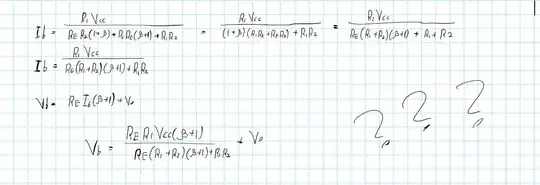 Ib = R1 Vcc / (RE R2(1+β) + R1 RE(β+1) + R1R2) = R1 Vcc / ((1+β)(R1RE + R2RE) + R1R2) = R1 Vcc / (RE(R1+R2)(β+1) + R1+R2)
Ib = R1 Vcc / (RE(R1+R2)(β+1) + R1R2)
Vb = RE Ib(β+1) + Vo
Vb = RE R1 Vcc(β+1) / (RE(R1+R2)(β+1) + R1R2) + Vo
? ? ?